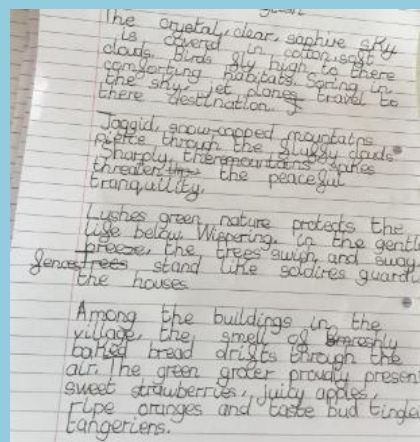 The crystal, clear, saphire sky
is covered in cotton, soft
clouds. Birds fly high to there
comforting habitats. Soring in
the sky, jet planes travel to
there destination.
Jaggid, snow-capped mountains
pierce through the fluffy clouds
Sharply, the mountains spikes
threaten the peaceful
tranquillity.
Lushes green nature protects the
life below. Wispering, in the gentle
breeze, the trees swish and sway.
fences trees stand like soldires guardi
the houses
Among the buildings in the
village, the smell of freshly
baked bread drifts through the
air. The green groter proudly present
sweet strawberries, juicy apples,
ripe oranges and taste bud tingle
tangeriens.